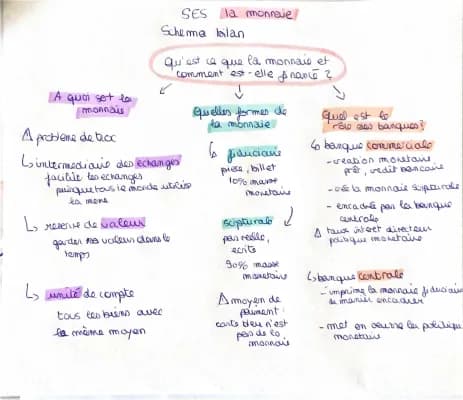 SES la monnaie
Schema bilan
Qu'est ce que la monnaie et
comment est-elle financé ?
A quoi sert la
monnaie
Δ problème de troc
↳ intermediaire des échanges
facilite les échanges
puisque tous le monde utilise
la meme
↳ reserve de valeur
garder sa valeur dans le
temps
↳ unité de compte
tous les biens avec
la même moyen
Quelles formes de
la monnaie
↳ fiduciaire
pièce, billet
10% masse
monetaire
scripturale
pas réelle,
ecrits
90% masse
monetaire
Δ moyen de
paiement :
carte bleu n'est
pas de la
monnaie
Quel est le
role des banques?
↳ banque commerciale
- creation monetaire
prêt, credit bancaire
- crée la monnaie scripturale
- encadrée par la banque
centrale
Δ taux interet directeur
politique monetaire
↳ banque centrale
- imprime la monnaie fiduciaire
de manier encadrer
- met en œuvre les politique
monetaire